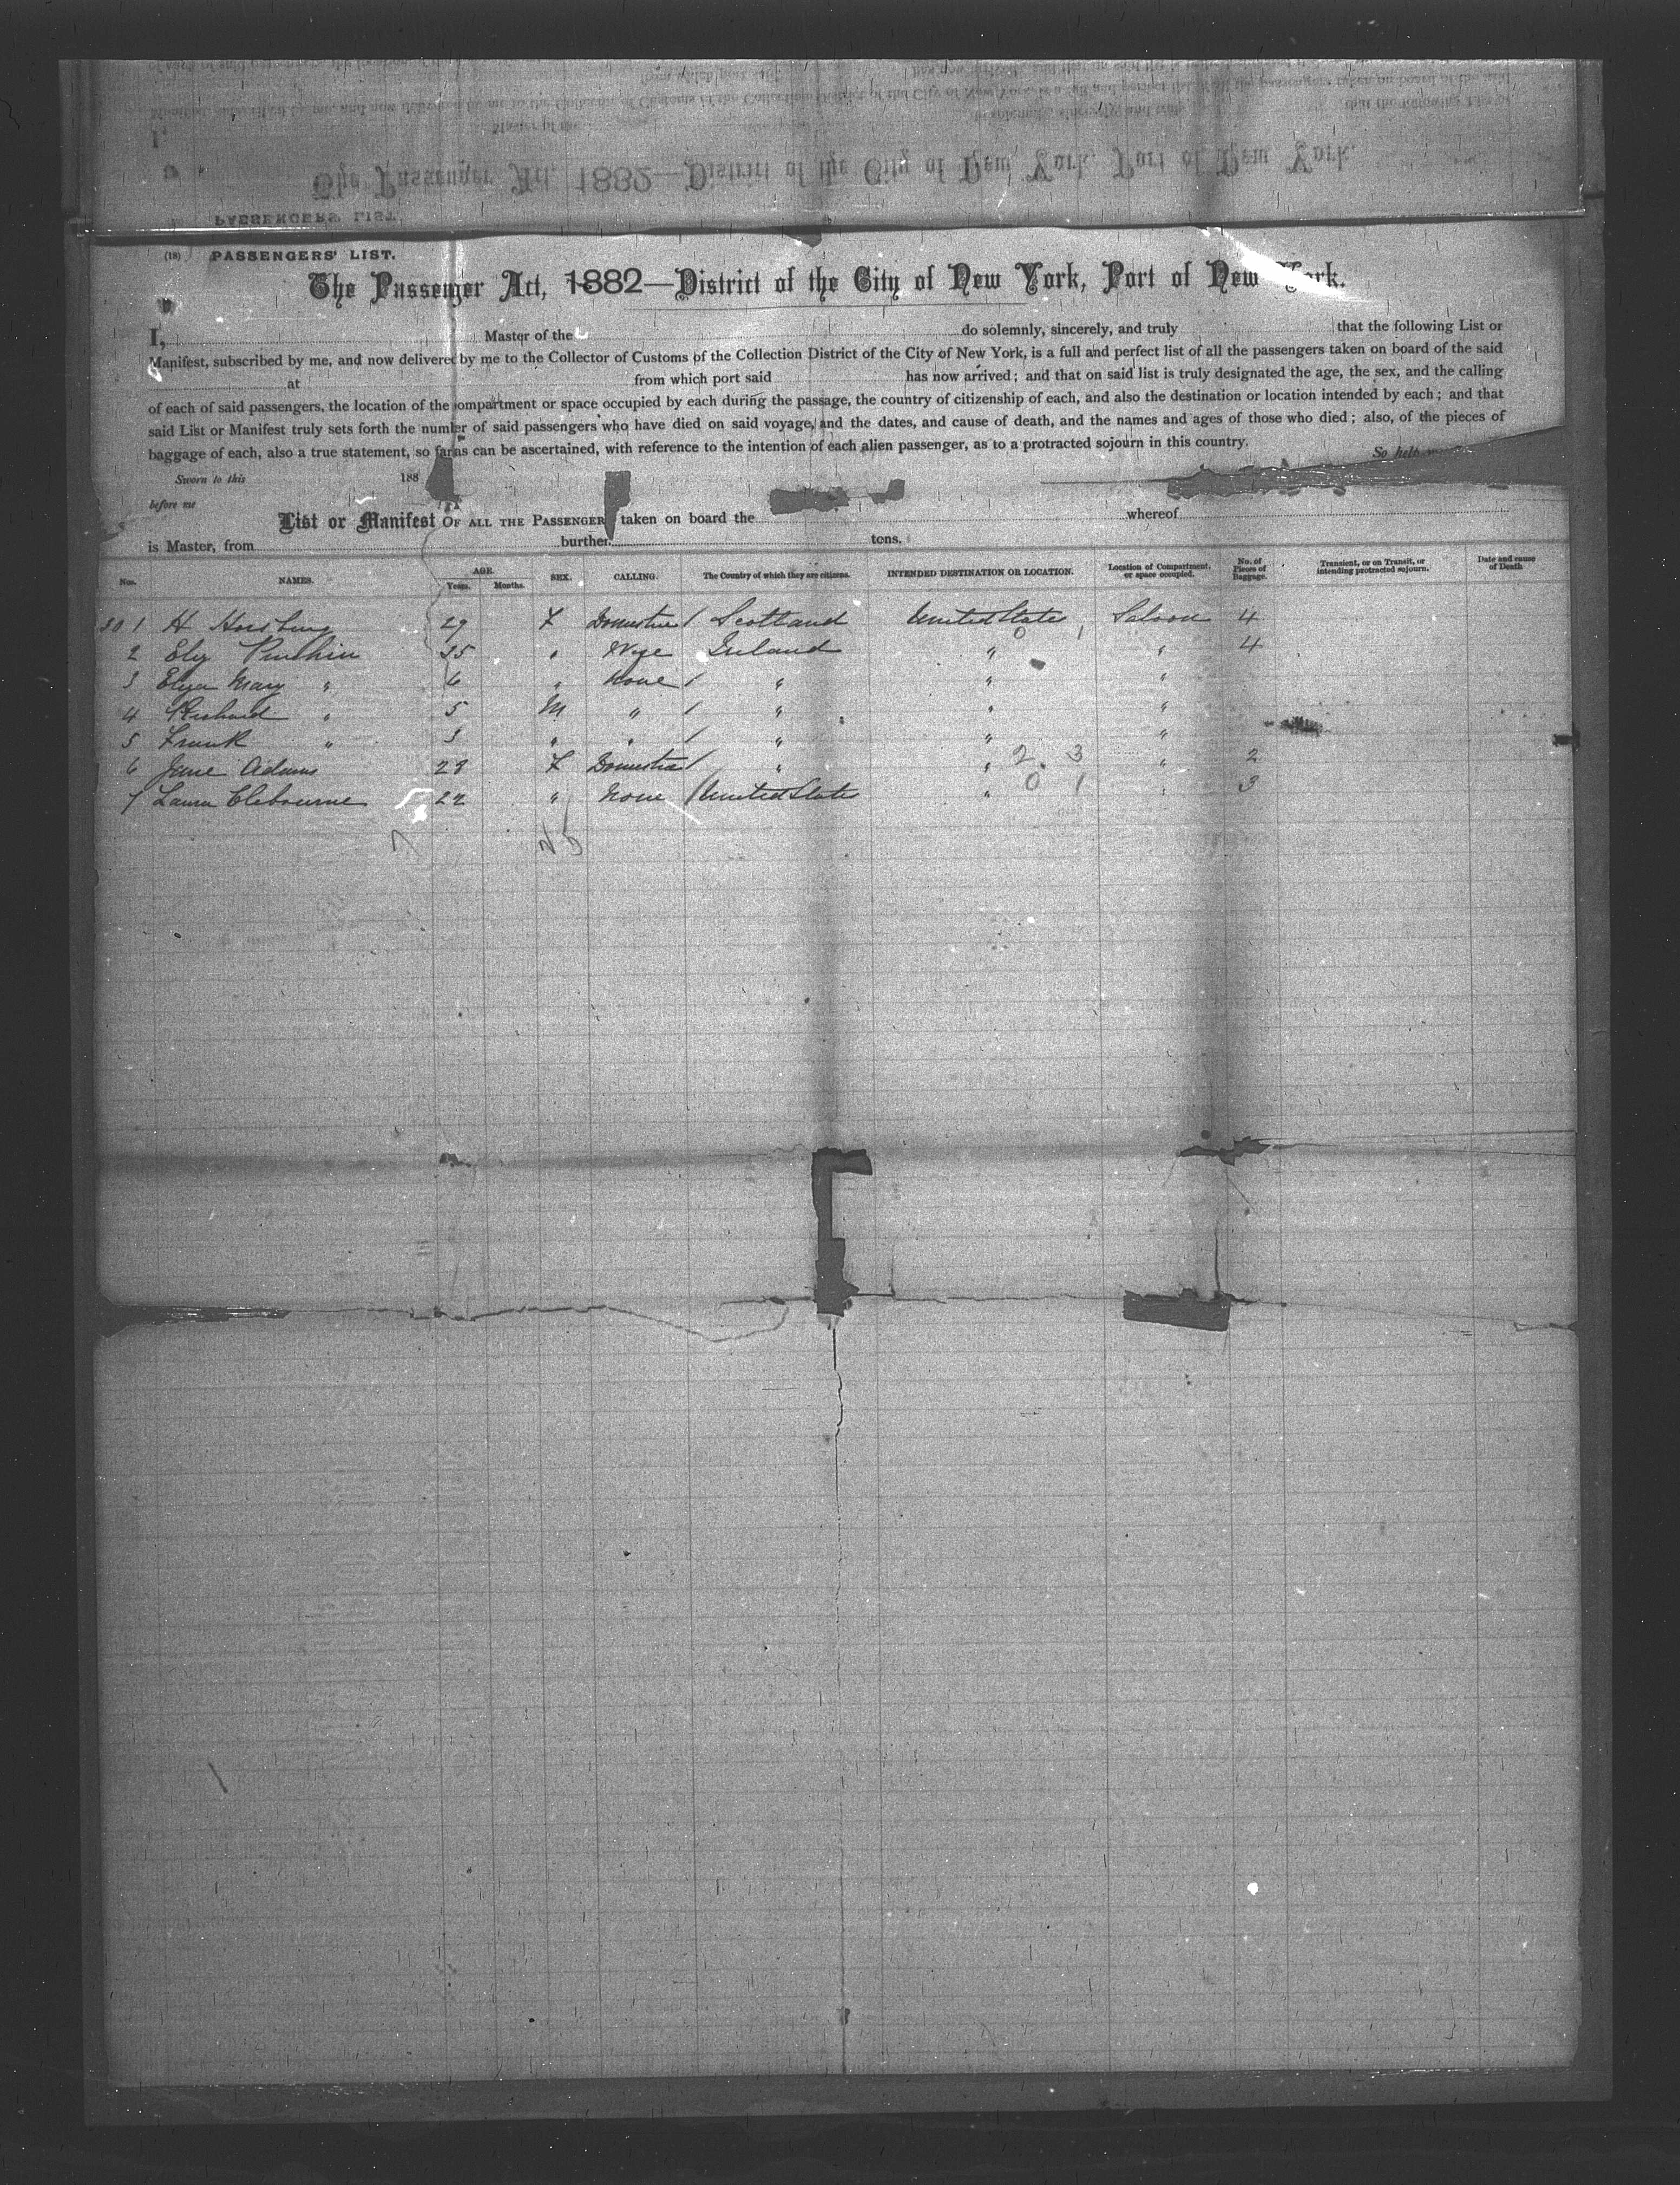 (18) PASSENGERS' LIST.
The Passenger Act, 1882—District of the City of New York, Port of New York.
I, Master of the do solemnly, sincerely, and truly that the following List or
Manifest, subscribed by me, and now delivered by me to the Collector of Customs of the Collection District of the City of New York, is a full and perfect list of all the passengers taken on board of the said
at from which port said has now arrived; and that on said list is truly designated the age, the sex, and the calling
of each of said passengers, the location of the compartment or space occupied by each during the passage, the country of citizenship of each, and also the destination or location intended by each; and that
said List or Manifest truly sets forth the number of said passengers who have died on said voyage, and the dates, and cause of death, and the names and ages of those who died; also, of the pieces of
baggage of each, also a true statement, so far as can be ascertained, with reference to the intention of each alien passenger, as to a protracted sojourn in this country. So help
Sworn to this 188
before me
List or Manifest OF ALL THE PASSENGER taken on board the whereof
is Master, from burther. tons.
Nos. NAMES. AGE. Years. Months. SEX. CALLING. The Country of which they are citizens. INTENDED DESTINATION OR LOCATION. Location of Compartment, or space occupied. No. of Pieces of Baggage. Transient, or on Transit, or intending protracted sojourn. Date and cause of Death
1 H 29 F Domestic / Scotland United State Saloon 4
2 35 " Ireland " 0 1 " 4
3 Eliza Mary " 6 " None / " " "
4 Richard " 5 M " / " " "
5 Frank " 3 " " / " " "
6 Jane Adams 28 F Domestic / " " 2. 3 " 2
7 Laura Clebourne 22 " None / United State " 0 1 " 3
7